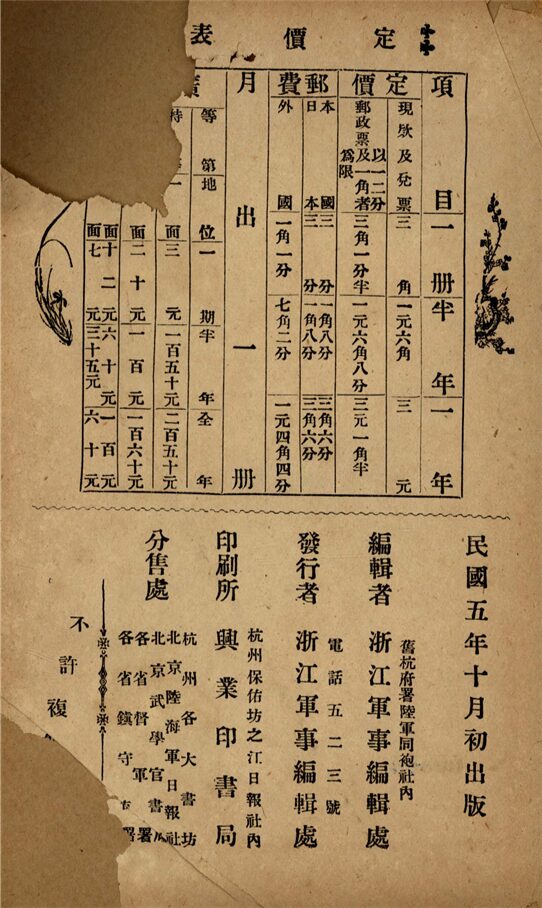 定價表
項目 一册 半年 一年
定價
現欵及兌票 三角 一元六角 三元
郵政票及一角者以一二分爲限 三角一分半 一元六角八分 三元一角半
郵費
本國 三分 一角八分 三角六分
日本 三分 一角八分 三角六分
外國 一角一分 七角二分 一元四角四分
月出一册
等第 地位 一期 半年 全年
特 一面 三 元 一百五十元 二百五十元
面 二十元 一百元 一百六十元
面 十二元 六十元 一百元
面 七元 三十五元 六十元
民國五年十月初出版
舊杭府署陸軍同袍社內
編輯者 浙江軍事編輯處
電話五二三號
發行者 浙江軍事編輯處
杭州保佑坊之江日報社內
印刷所 興業印書局
分售處
杭州各大書坊
北京陸海軍日報社
北京武學官書
各省督軍署
各省鎮守 署
不許複